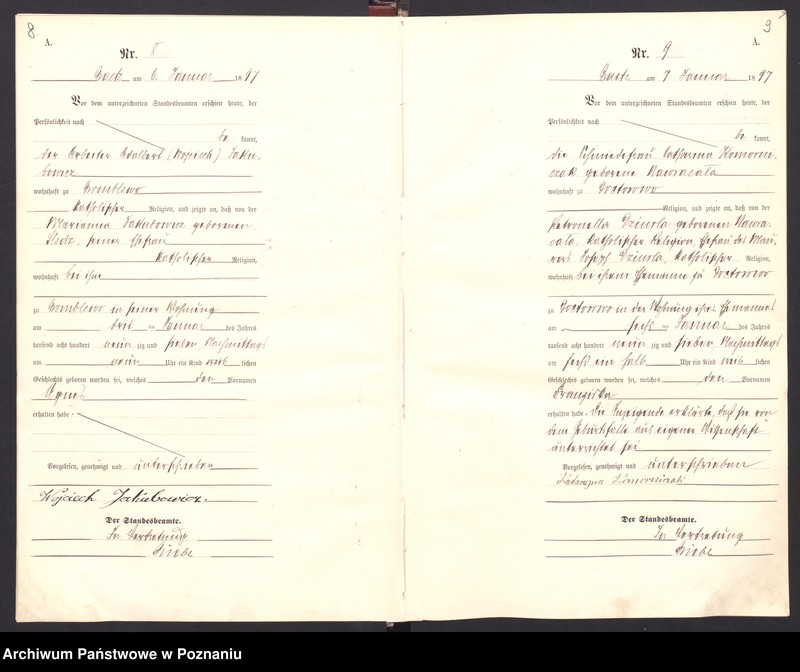 8.
A.
Nr. 8
am 6. Januar 1897
Vor dem unterzeichneten Standesbeamten erschien heute, der
Persönlichkeit nach
be kannt,
der Arbeiter Adalbert (Wojciech) Jaku-
bowicz
wohnhaft zu
katholischer Religion, und zeigte an, daß von der
Marianna Jakubowicz geborenen
seiner Ehefrau
katholischer Religion,
wohnhaft bei ihm
zu in seiner Wohnung
am drit ten Januar des Jahres
tausend acht hundert neun zig und sieben Nachmittags
um neun Uhr ein Kind weib lichen
Geschlechts geboren worden sei, welches den Vornamen
Agnes
erhalten habe.
Vorgelesen, genehmigt und unterschrieben
Wojciech Jakubowicz.
Der Standesbeamte.
In Vertretung
9
A.
Nr. 9
am 7 Januar 1897
Vor dem unterzeichneten Standesbeamten erschien heute, der
Persönlichkeit nach
be kannt,
die Schmiedefrau Catharina Komorni-
czak geborene Nawracała
wohnhaft zu
Religion, und zeigte an, daß von der
Petronella geborenen Nawra-
cała, katholischer Religion, Ehefrau des Mau-
rers Joseph katholischer Religion,
wohnhaft bei ihrem Ehemanne zu
zu in der Wohnung ihres Ehemannes
am sechs ten Januar des Jahres
tausend acht hundert neun zig und sieben Nachmittags
um sechs ein halb Uhr ein Kind weib lichen
Geschlechts geboren worden sei, welches den Vornamen
Franziska
erhalten habe. Die Anzeigende erklärte, daß sie von
dem Geburtsfalle aus eigener Wissenschaft
unterrichtet sei
Vorgelesen, genehmigt und unterschrieben
Der Standesbeamte.
In Vertretung
Archiwum Państwowe w Poznaniu